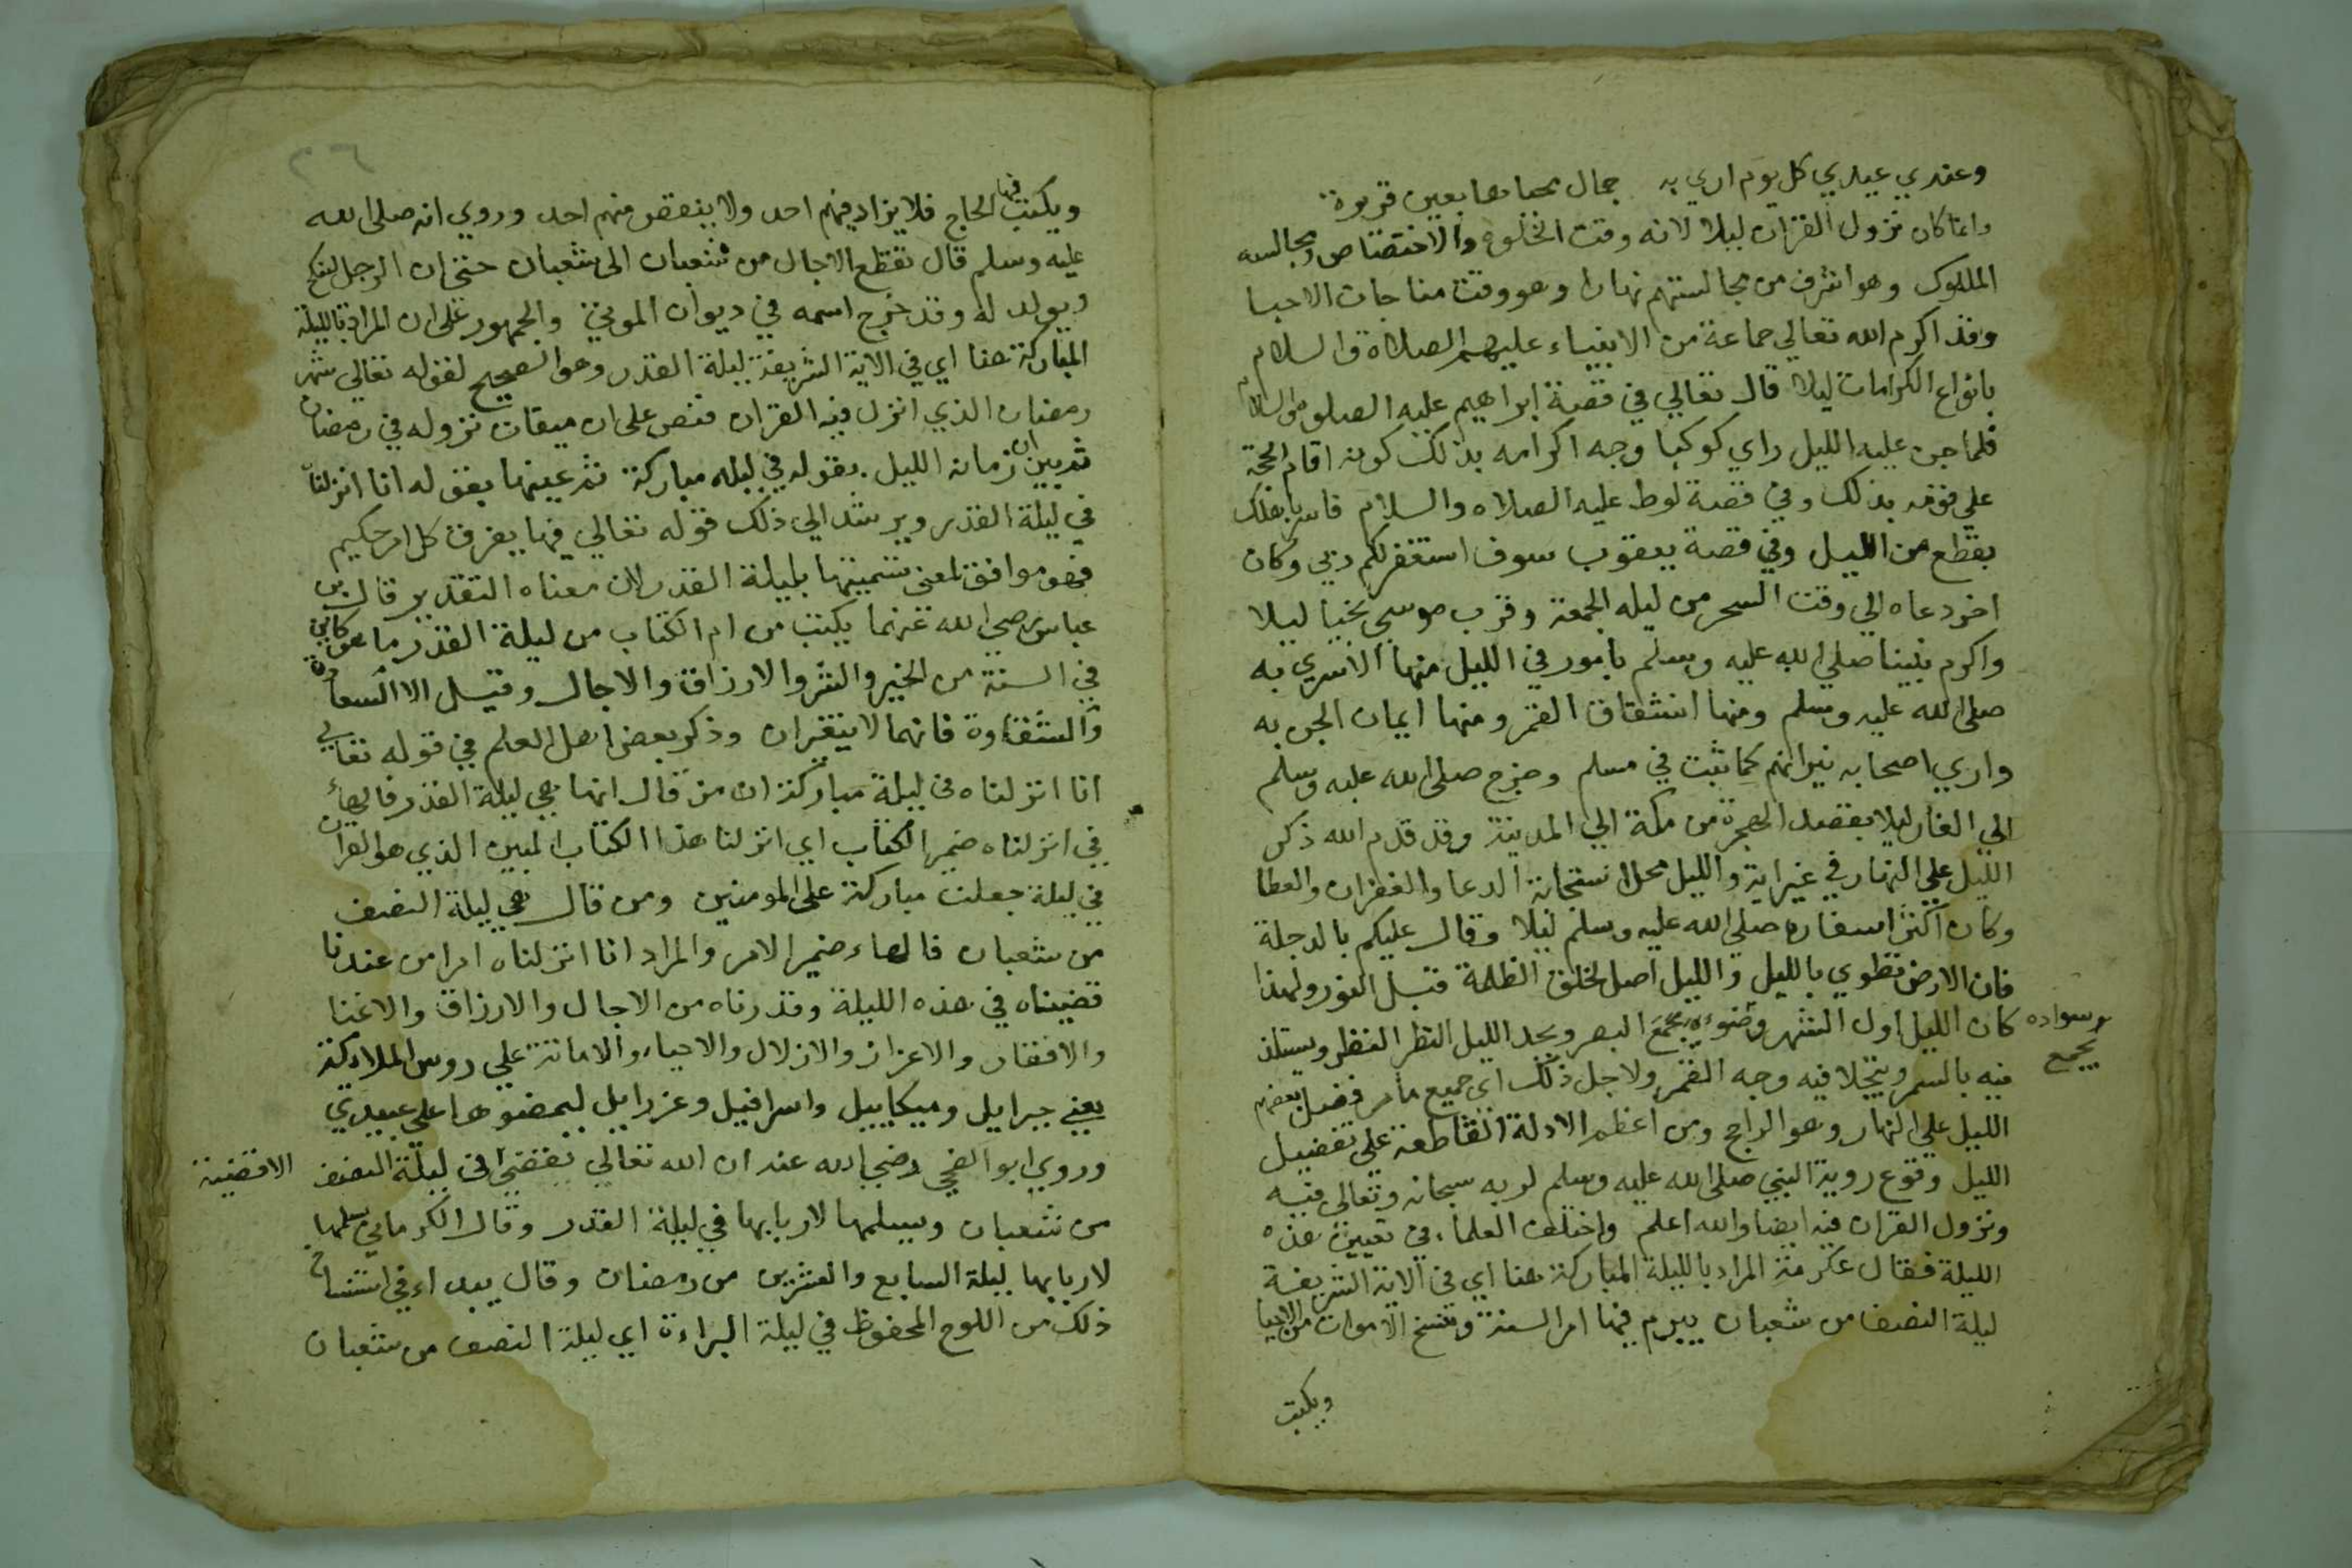 وعندي عيدي كل يوم اري به جمال محياها بعين قريرة
وانما كان نزول القران ليلا لانه وقت الخلوة والاختصاص ومجالسه
الملوك وهو اشرف من مجالستهم نهارا وهو وقت مناجات الاحبا
وقد اكرم الله تعالي جماعة من الانبياء عليهم الصلاة والسلام
بانواع الكرامات ليلا قال تعالي في قصة ابراهيم عليه الصلوه والسلام
فلما جن عليه الليل راي كوكبا وجه اكرامه بذلك كونه اقام الحجة
علي قومه بذلك وفي قصة لوط عليه الصلاه والسلام فاسر باهلك
بقطع من الليل وفي قصة يعقوب سوف استغفر لكم ربي وكان
اخر دعاه الي وقت السحر من ليله الجمعة وقرب موسي نجيا ليلا
واكرم نبينا صلي الله عليه وسلم بامور في الليل منها الاسري به
صلي الله عليه وسلم ومنها انشقاق القمر ومنها ايمان الجن به
واري اصحابه نيرانهم كما ثبت في مسلم وخرج صلي الله عليه وسلم
الي الغار ليلا بقصد الهجرة من مكة الي المدينة وقد قدم الله ذكر
الليل علي النهار في غير اية والليل محل استجابة الدعا والغفران والعطا
وكان اكثر اسفاره صلي الله عليه وسلم ليلا وقال عليكم بالدجلة
فان الارض تطوي بالليل والليل اصل لخلق الظلمة قبل النور ولهذا
كان الليل اول الشهر وضوءه يجمع البصر ويحد الليل النظر ويستلذ
وسواده
يجمع
فيه بالسمر ويتجلا فيه وجه القمر ولاجل ذلك اي جميع ما مر فضل بعضهم
الليل علي النهار وهو الراجح ومن اعظم الادلة القاطعة علي تفضيل
الليل وقوع روية النبي صلي الله عليه وسلم لربه سبحانه وتعالي فيه
ونزول القران فيه ايضا والله اعلم واختلف العلماء في تعيين هذه
الليلة فقال عكرمة المراد بالليلة المباركة هنا اي في الاية الشريفة
ليلة النصف من شعبان يبرم فيها امر السنة وتنسخ الاموات من الاحيا
ويكتب
٢٦
ويكتب فيها الحاج فلا يزاد فيهم احد ولا ينقص منهم احد وروي انه صلي الله
عليه وسلم قال تقطع الاجال من شعبان الي شعبان حتي ان الرجل لينكح
ويولد له وقد خرج اسمه في ديوان الموتي والجمهور علي ان المراد بالليلة
المباركة هنا اي في الاية الشريفة ليلة القدر وهو الصحيح لقوله تعالي شهر
رمضان الذي انزل فيه القران فنص علي ان ميقات نزوله في رمضان
ثم بين ان زمانه الليل بقوله في ليله مباركة ثم عينها بقوله انا انزلناه
في ليلة القدر ويرشد الي ذلك قوله تعالي فيها يفرق كل امر حكيم
فهو موافق لمعني تسميتها بليلة القدر لان معناه التقدير قال بن
عباس رضي الله عنهما يكتب من ام الكتاب من ليلة القدر ما هو كاين
في السنة من الخير والشر والارزاق والاجال وقيل الا السعادة
والشقاوة فانهما لا يتغيران وذكر بعض اهل العلم في قوله تعالي
انا انزلناه في ليلة مباركة ان من قال انها هي ليلة القدر فالهاء
في انزلناه ضمير الكتاب اي انزلنا هذا الكتاب المبين الذي هو القران
في ليلة جعلت مباركة علي المومنين ومن قال هي ليلة النصف
من شعبان فالهاء ضمير الامر والمراد انا انزلناه امرا من عندنا
قضيناه في هذه الليلة وقدرناه من الاجال والارزاق والاغنا
والافقار والاعزاز والاذلال والاحياء والاماتة علي روس الملائكة
يعني جبرايل وميكاييل واسرافيل وعزرايل ليمضوها علي عبيدي
وروي ابو الضحي رضي الله عنه ان الله تعالي يقضي في ليلة النصف
الاقضية
من شعبان ويسلمها لاربابها في ليلة القدر وقال الكرماني يسلمها
لاربابها ليلة السابع والعشرين من رمضان وقال يبداء في استنساخ
ذلك من اللوح المحفوظ في ليلة البراءة اي ليلة النصف من شعبان